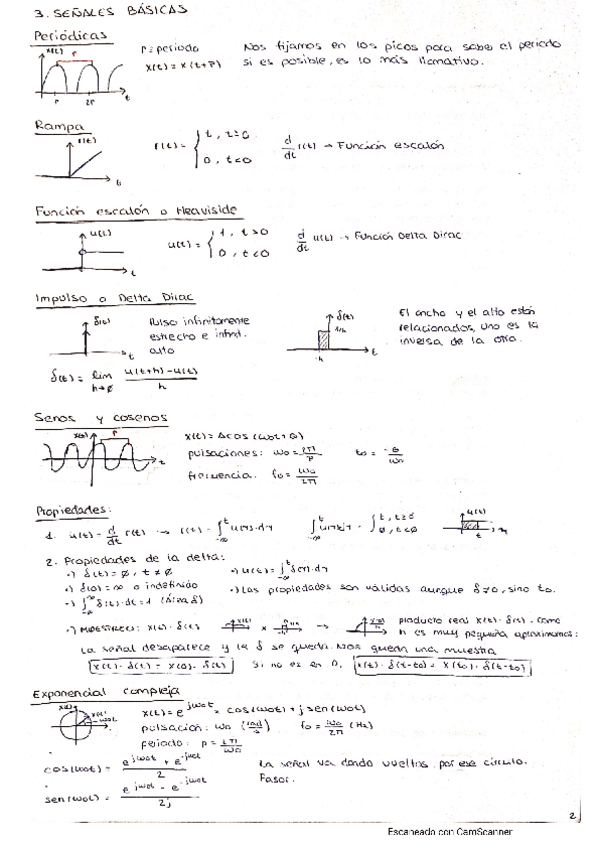 3. SEÑALES BÁSICAS
Periódicas
x(t) P
P = periodo
x(t) = x(t+P)
Nos fijamos en los picos para saber el periodo
si es posible, es lo más llamativo.
P 2P t
Rampa
r(t)
t
r(t) = { t, t≥0
0, t<0
d/dt r(t) → Función escalón
Función escalón o Heaviside
u(t)
t
u(t) = { 1, t>0
0, t<0
d/dt u(t) → Función Delta Dirac
Impulso o Delta Dirac
δ(t)
t
Pulso infinitamente
estrecho e infinit.
alto
δ(t) = lim h→ø u(t+h)-u(t)/h
δ(t)
1/h
-h t
El ancho y el alto están
relacionados, uno es la
inversa de la otra.
Senos y cosenos
x(t) P
t
x(t) = A cos (ωot + θ)
pulsaciones: ωo = 2π/P
to = -θ/ωo
frecuencia. fo = ωo/2π
Propiedades:
1. u(t) = d/dt r(t) → r(t) = ∫_-∞^t u(τ)·dτ
∫_-∞^t u(τ)dτ = { t, t≥0
ø, t<0
u(τ)
t
2. Propiedades de la delta:
·) δ(t) = ø, t ≠ ø
·) u(t) = ∫_-∞^t δ(τ)·dτ
·) δ(0) = ∞ o indefinido
·) Las propiedades son válidas aunque δ≠0, sino to.
·) ∫_-∞^∞ δ(t)·dt = 1 (Área δ)
·) MUESTREO: x(t)·δ(t)
x →
producto real x(t)·δ(t). como
h es muy pequeña aproximamos:
La señal desaparece y la δ se queda. Nos queda una muestra
x(t)·δ(t) = x(0)·δ(t)
Si no es en 0,
x(t)·δ(t-to) = x(to)·δ(t-to)
Exponencial compleja
x(t) = e^jωot = cos(ωot) + j sen(ωot)
pulsación: ωo (rad/s) fo = ωo/2π (Hz)
periodo: P = 2π/ωo
cos(ωot) = e^jωot + e^-jωot / 2
La señal va dando vueltas por ese círculo.
Fasor.
sen(ωot) = e^jωot - e^-jωot / 2j
2
Escaneado con CamScanner